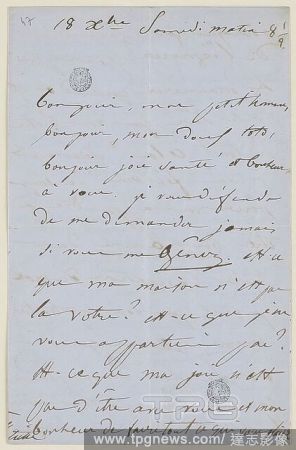 47
18 Xbre Samedi matin 8 1/2
bonjour, mon petit homme,
bonjour, mon doux toto,
bonjour joie santé et bonheur
à vous. je vous défends
de me demander jamais
si vous me gênez. Est-ce
que ma maison n'est pas
la vôtre? Est-ce que je ne
vous appartiens pas?
Est-ce que ma joie n'est
pas d'être avec vous et mon
bonheur de faire tout ce qui vous
TPG
www.tpgnews.com 達志影像